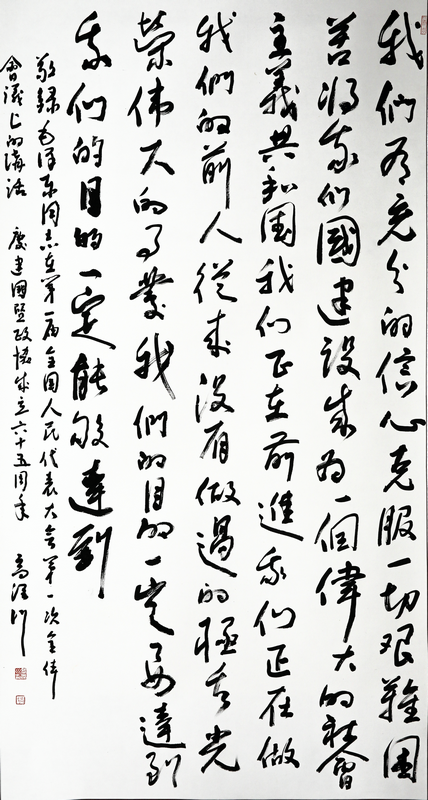 我們有充分的信心克服一切艰難困
苦将我们國建設成为一個偉大的社會
主義共和国我们正在前進我们正在做
我們的前人從来没有做過的極其光
榮伟大的事業我們的目的一定要達到
我们的目的一定能够達到
敬録毛泽东同志在第一届全国人民代表大会第一次全体
會議上的講話 慶建國暨政協成立六十五周年